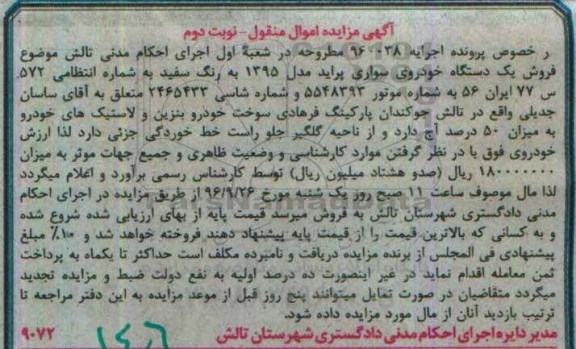 آگهی مزایده اموال منقول - نوبت دوم
ر خصوص پرونده اجرایه ۰۳۸ ۹۶ مطروحه در شعبه اول اجرای احکام مدنی تالش موضوع
فروش یک دستگاه خودروی سواری پراید مدل ۱۳۹۵ به رنگ سفید به شماره انتظامی ۵۷۲
س ۷۷ ایران ۵۶ به شماره موتور ۵۵۴۸۳۹۳ و شماره شاسی ۲۴۶۵۴۳۳ متعلق به آقای ساسان
جدیلی واقع در تالش جوکندان پارکینگ فرهادی سوخت خودرو بنزین و لاستیک های خودرو
به میزان ۵۰ درصد آج دارد و از ناحیه گلگیر جلو راست خط خوردگی جزئی دارد لذا ارزش
خودروی فوق با در نظر گرفتن موارد کارشناسی و وضعیت ظاهری و جمیع جهات موثر به میزان
۱۸۰۰۰۰۰۰۰ ریال (صدو هشتاد میلیون ریال) توسط کارشناس رسمی برآورد و اعلام میگردد
لذا مال موصوف ساعت ۱۱ صبح روز یک شنبه مورخ ۹۶/۹/۲۶ از طریق مزایده در اجرای احکام
مدنی دادگستری شهرستان تالش به فروش میرسد قیمت پایه از بهای ارزیابی شده شروع شده
و به کسانی که بالاترین قیمت را از قیمت پایه پیشنهاد دهند فروخته خواهد شد و ۱۰٪ مبلغ
پیشنهادی فی المجلس از برنده مزایده دریافت و نامبرده مکلف است حداکثر تا یکماه به پرداخت
ثمن معامله اقدام نماید در غیر اینصورت ده درصد اولیه به نفع دولت ضبط و مزایده تجدید
میگردد متقاضیان در صورت تمایل میتوانند پنج روز قبل از موعد مزایده به این دفتر مراجعه تا
ترتیب بازدید آنان از مال مورد مزایده داده شود.
مدیر دایره اجرای احکام مدنی دادگستری شهرستان تالش
۹۰۷۲